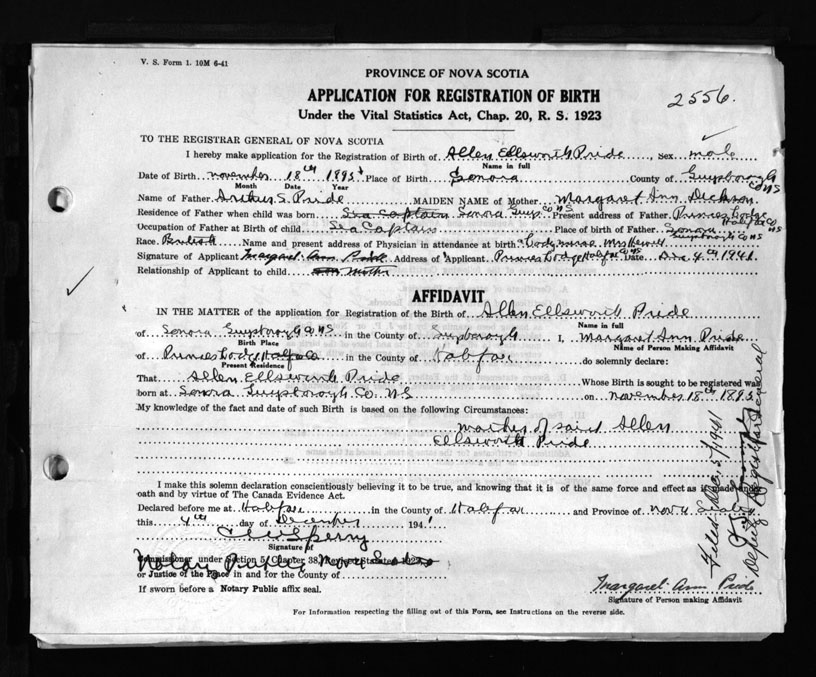 V. S. Form 1. 10M 6-41
PROVINCE OF NOVA SCOTIA
APPLICATION FOR REGISTRATION OF BIRTH
2556.
Under the Vital Statistics Act, Chap. 20, R. S. 1923
TO THE REGISTRAR GENERAL OF NOVA SCOTIA
I hereby make application for the Registration of Birth of Allen Ellsworth Pride, Sex male
Name in full
Date of Birth november 18th 1895 Place of Birth Sonora County of Guysborough Co NS
Month Date Year
Name of Father S. Pride MAIDEN NAME of Mother Margaret Ann Dickson
Residence of Father when child was born Sea Captain Sonora Guys Co NS Present address of Father Princes Lodge Halifax Co NS
Occupation of Father at Birth of child Sea Captain Place of birth of Father Sonora Guysborough Co NS
Race British Name and present address of Physician in attendance at birth
Signature of Applicant Margaret Ann Pride Address of Applicant Princes Lodge Halifax Co NS Date Dec 4th 1941
Relationship of Applicant to child mother
AFFIDAVIT
IN THE MATTER of the application for Registration of the Birth of Allen Ellsworth Pride
Name in full
of Sonora Guysborough Co NS in the County of Guysborough I, Margaret Ann Pride
Birth Place Name of Person Making Affidavit
of Princes Lodge Halifax Co in the County of Halifax do solemnly declare:
Present Residence
That Allen Ellsworth Pride Whose Birth is sought to be registered was
born at Sonora Guysborough Co. NS on november 18th 1895
My knowledge of the fact and date of such Birth is based on the following Circumstances:
mother of said Allen
Ellsworth Pride
I make this solemn declaration conscientiously believing it to be true, and knowing that it is of the same force and effect as if made under
oath and by virtue of The Canada Evidence Act.
Declared before me at Halifax in the County of Halifax and Province of Nova Scotia
this 4th day of December 1941
Signature of
Commissioner under Section 5, Chapter 38, Revised Statutes 1923
Notary Public Nova Scotia
or Justice of the Peace in and for the County of
If sworn before a Notary Public affix seal.
Margaret Ann Pride
Signature of Person making Affidavit
For Information respecting the filling out of this Form, see Instructions on the reverse side.
Filed Dec. 5/1941
Deputy Registrar General